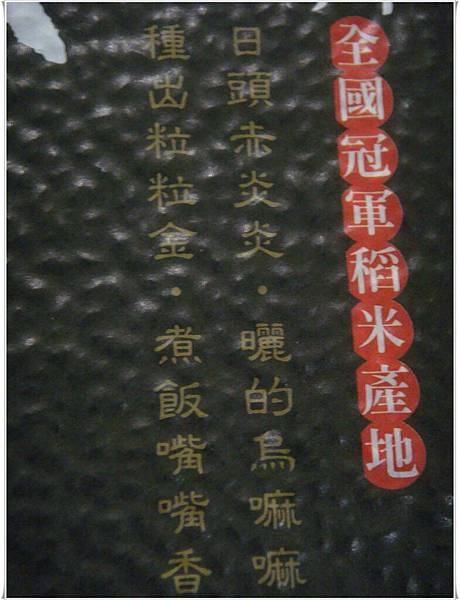 全國冠軍稻米產地
日頭赤炎炎·曬的烏嘛嘛
種出粒粒金·煮飯嘴嘴香